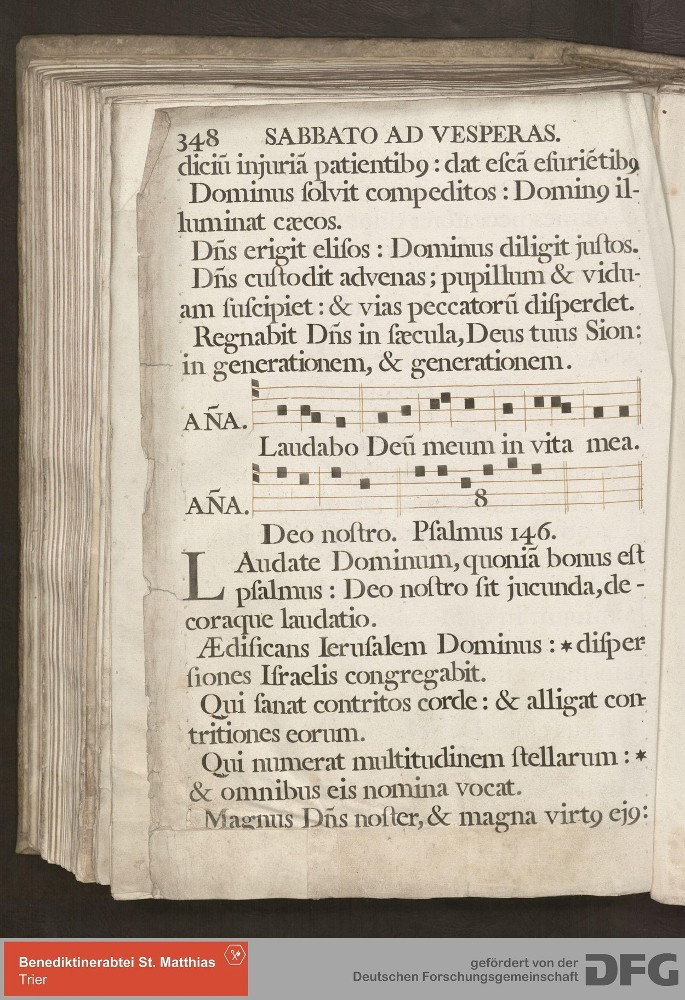 348 SABBATO AD VESPERAS.
diciũ injuriã patientibꝯ : dat eſcã eſuriẽtibꝯ
Dominus ſolvit compeditos : Dominꝯ il-
luminat cæcos.
Dñs erigit eliſos : Dominus diligit juſtos.
Dñs cuſtodit advenas ; pupillum & vidu-
am ſuſcipiet : & vias peccatorũ diſperdet.
Regnabit Dñs in ſæcula, Deus tuus Sion:
in generationem, & generationem.
AÑA.
Laudabo Deũ meum in vita mea.
AÑA. 8
Deo noſtro. Pſalmus 146.
LAudate Dominum, quoniã bonus eſt
pſalmus : Deo noſtro ſit jucunda, de-
coraque laudatio.
Ædificans Ieruſalem Dominus : * diſper-
ſiones Iſraelis congregabit.
Qui ſanat contritos corde : & alligat con-
tritiones eorum.
Qui numerat multitudinem ſtellarum : *
& omnibus eis nomina vocat.
Magnus Dñs noſter, & magna virtꝯ ejꝯ:
Benediktinerabtei St. Matthias
Trier
gefördert von der
Deutschen Forschungsgemeinschaft DFG